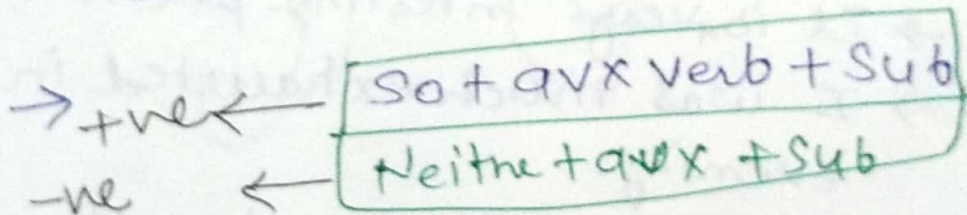 → +ve ← So + aux verb + Sub
-ve ← Neithe + aux + Sub